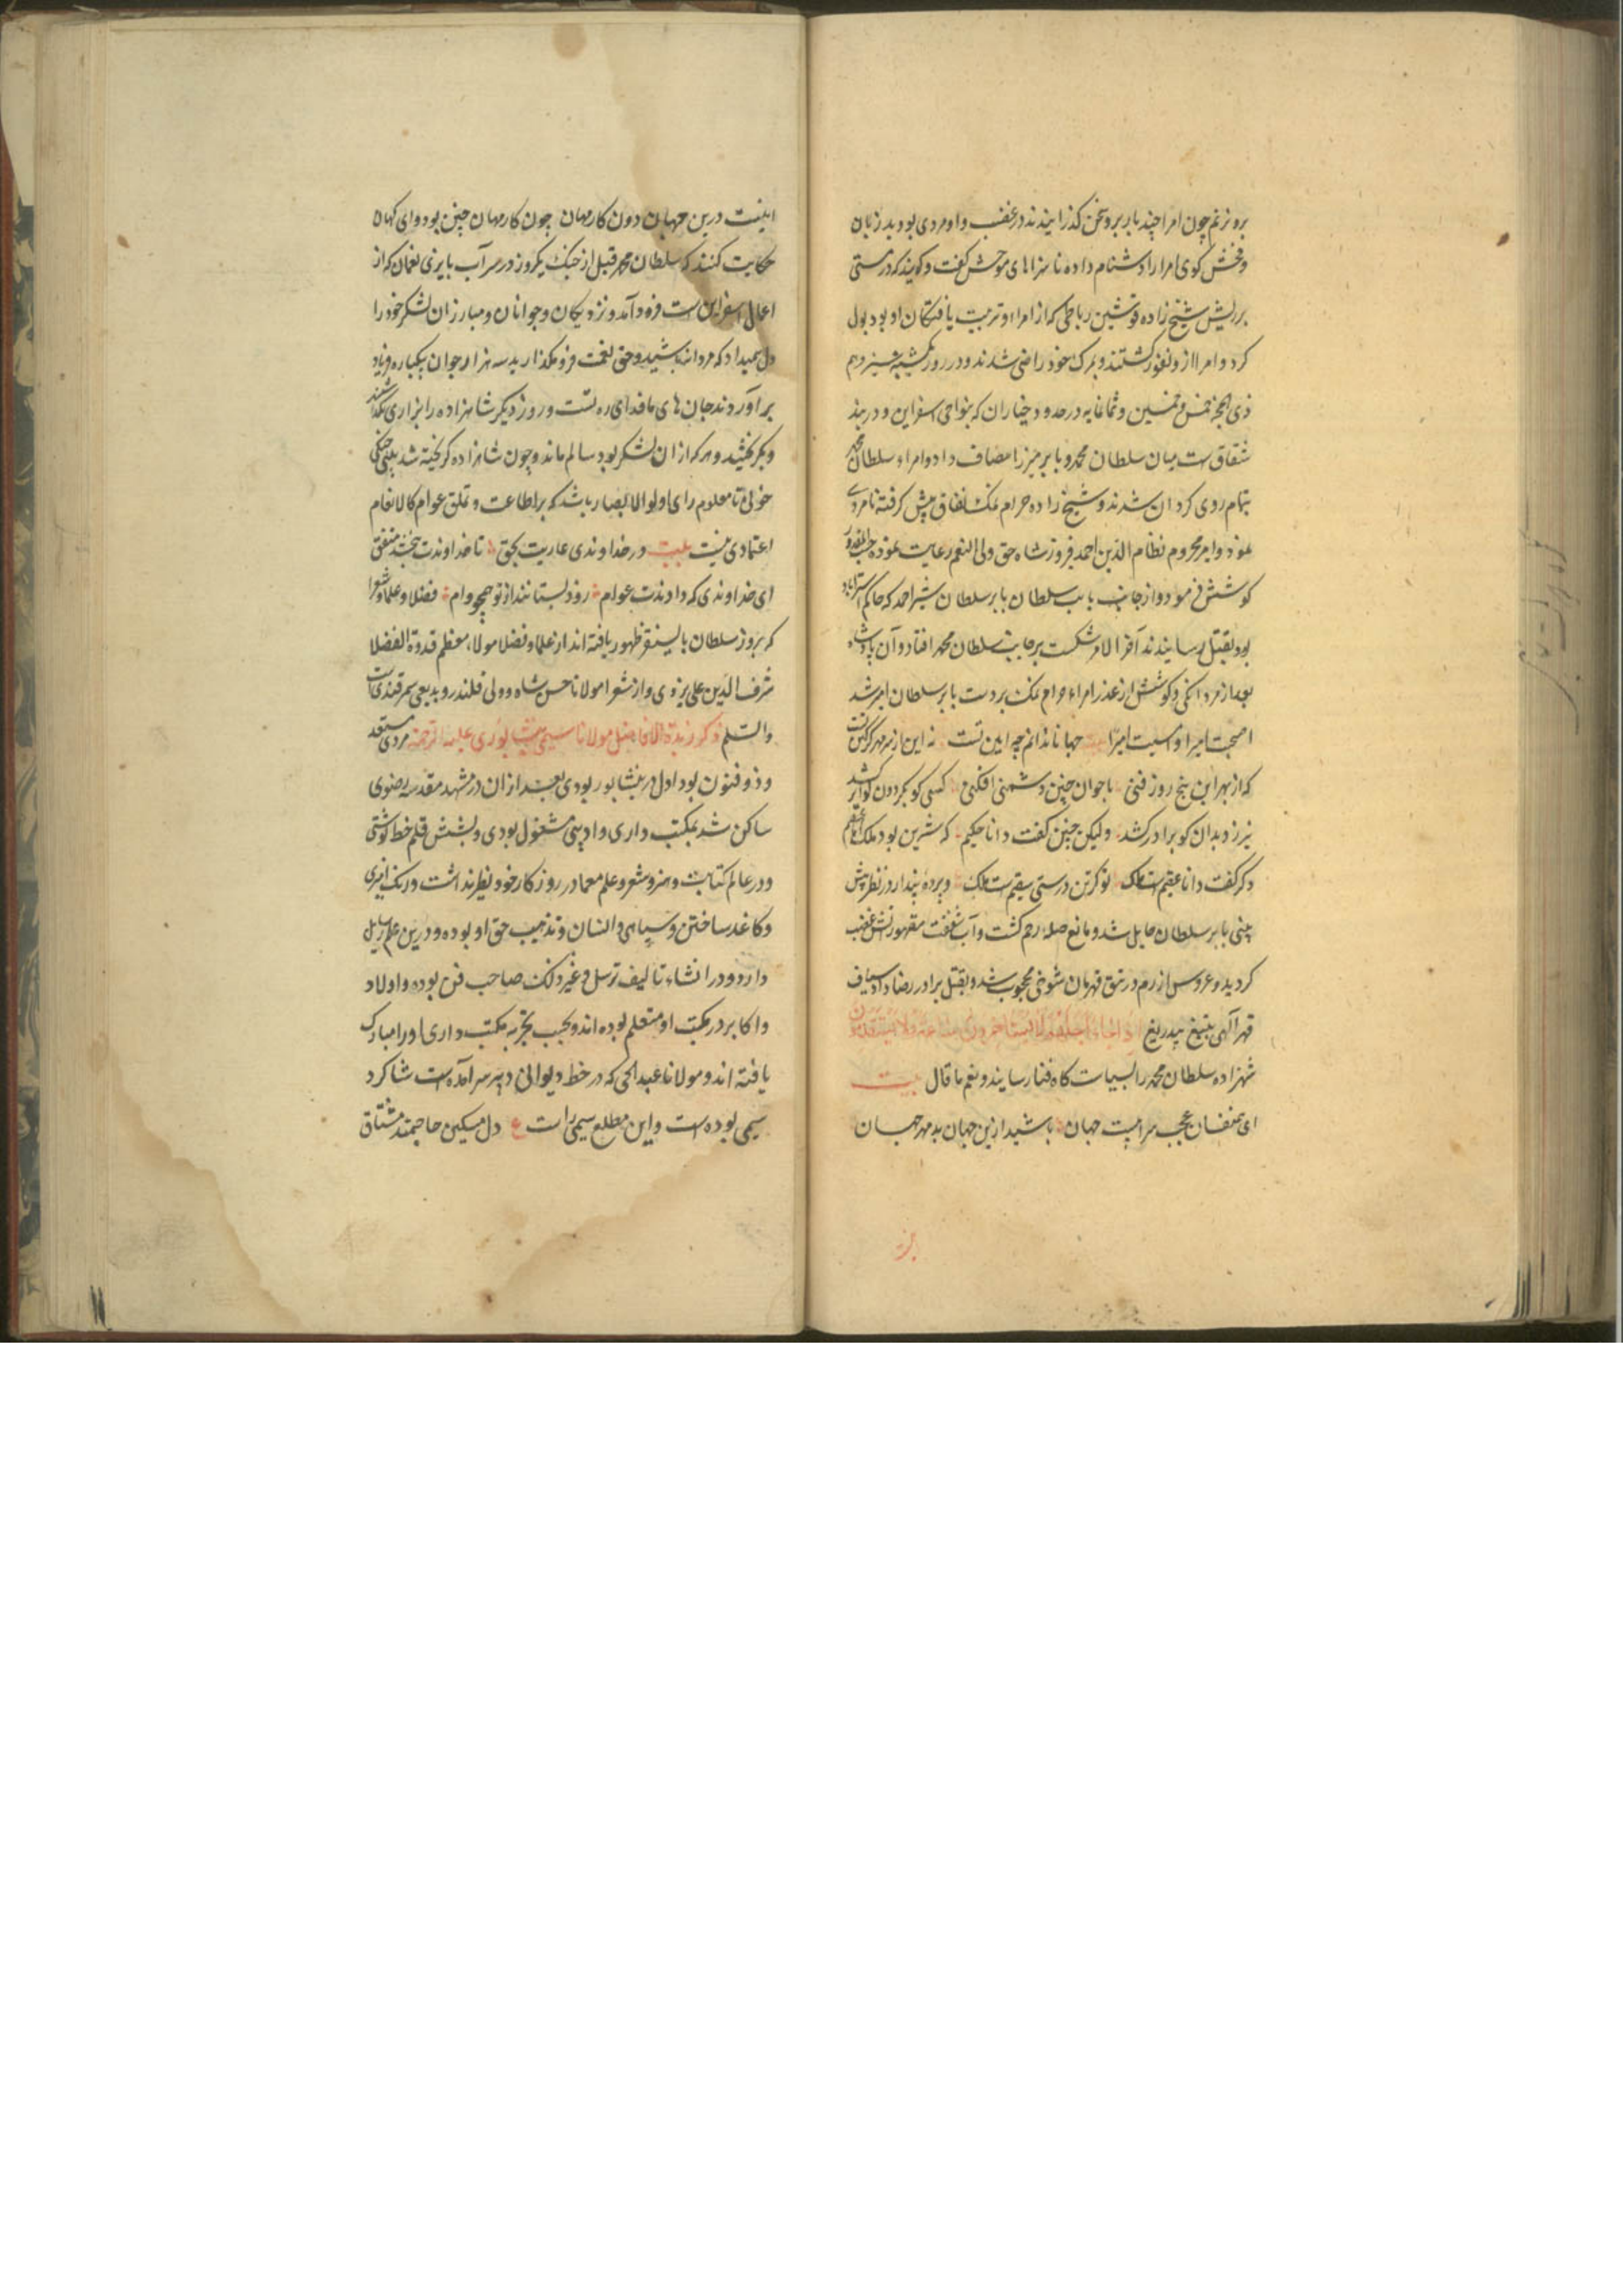 بروز نم چون امرا چند بار برو سخن گذرانیدند در غضب و او مردی بود بد زبان
و فحش گوی امرا را دشنام داده ناسزاهای موحش گفت و گویند که در مستی
بر ریش شیخ زاده قوشین رباطی که از امرا و تربیت یافتگان او بود بول
کرد و امرا ازو نفور گشتند و بمرگ خود راضی شدند و در روز یکشنبه سیزدهم
ذی الحجه خمس و خمسین و ثمانمایه در حدود جناران که بنواحی اسفراین و در بند
شقاق است میان سلطان محمد و بابر میرزا مصاف داد و امراء سلطان محمد
بتمام روی گردان شدند و شیخ زاده حرام نمک نفاق پیش گرفته نامردی
نمود و امیر مرحوم نظام الدین احمد فیروزشاه حق ولی النعم رعایت نموده حسب المقدور
کوشش فرمود و از جانب بابر سلطان شیر احمد که حاکم استراباد
بود بقتل رسانیدند آخر الامر شکست بر جانب سلطان محمد افتاد و آن پادشاه
بعد از مردانگی و کوشش از غدر امراء حرام نمک بردست بابر سلطان اسیر شد
اصبحت امیرا و امسیت اسیرا بیت جهانا ندانم چه آیین تست نه این از سر مهر و کین تست
که از بهر این پنج روز فنی با جوان چنین دشمنی افکنی کسی کو بگردون کوا برکشد
نیرزد بدان کو برادر کشد ولیکن چنین گفت دانا حکیم که شیرین بود ملک اما عقیم
دگر گفت دانا عقیم است ملک نو کرتن درستی سقیم است ملک و پرده پندار در نظر پیش
بینی بابر سلطان حایل شد و مانع صله رحم گشت و آب شفقت مقهور آتش غضب
کردید و عروس ازرم در تتق قهرمان شوخی محجوب شد و بقتل برادر رضا داد و سیاف
قهر الهی بتیغ بیدریغ اذا جاء اجلهم لا یستاخرون ساعة ولا یستقدمون
شهزاده سلطان محمد را بسیاست کاه فنا رسانیدند و نعم ما قال بیت
ای همنفسان عجب سراییست جهان باشید ازین جهان بد مهر جهان
اینست درین جهان دون کار مهان چون کار مهان چنین بود وای کهان
حکایت کنند که سلطان محمد قبل از جنگ یکروز در سر آب بایزی نعمان که از
اعمال اسفراین است فرود آمد و نزدیکان و جوانان و مبارزان لشکر خود را
دل میداد که مردانه باشید و حق نعمت فرو مگذارید سه هزار جوان بیکباره فریاد
برآوردند جان های ما فدای ره تست و روز دیگر شاهزاده را بزاری بگذاشتند
و بگریختند و هر که از ان لشکر بود سالم ماند و چون شاهزاده گریخته شد
تا معلوم رای اولو الابصار باشد که بر اطاعت و تملق عوام کالانعام
اعتمادی نیست بیت در خداوندی عاریت بحق تا خداوندت متفق
ای خداوندی که دادندت عوام زود بستانند از تو همچو وام فضلا و علما و شعرا
که بروز سلطان بایسنقر ظهور یافته اند از علما و فضلا مولا، معظم قدوة الفضلا
شرف الدین علی یزدی و از شعرا مولانا حسن شاه و ولی قلندر و بدیعی سمرقندی است
والسلم ذکر زبدة الافاضل مولانا سیمی نیشابوری علیه الرحمه مردی مستعد
و ذو فنون بود اول در نیشابور بودی بعد از ان در مشهد مقدسه رضوی
ساکن شد بمکتب داری و ادیبی مشغول بودی و بشش قلم خط نوشتی
و در عالم کتابت و هنر و شعر و علم معما در روزگار خود نظیر نداشت و رنگ آمیزی
و کاغذ ساختن و سیاهی و افشان و تذهیب حق او بوده و درین علم رسایل
دارد و در انشاء تالیف ترسل و غیر ذلک صاحب فن بوده و اولاد
و اکابر در مکتب او متعلم بوده اند و بحسب تجربه مکتب داری او را مبارک
یافته اند و مولانا عبدالحی که در خط دیوانی دبیر سرآمده است شاکرد
سیمی بوده است و این مطلع سیمی راست ع دل مسکین حاجتمند مشتاق